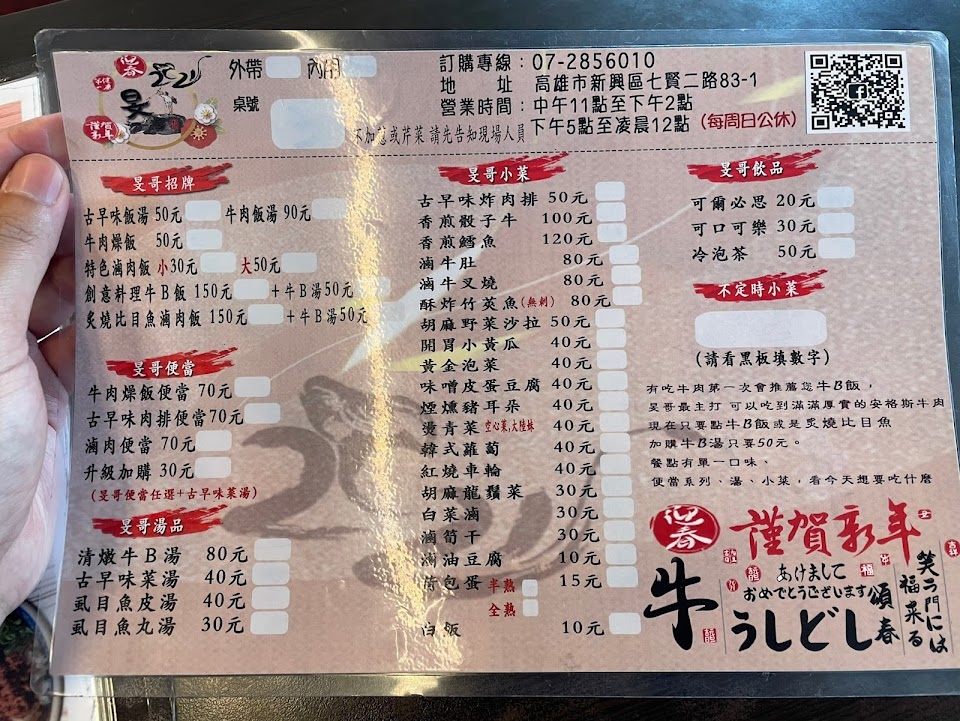 迎春
2021
昊
謹賀新年
外帶 內用
桌號
訂購專線：07-2856010
地 址 高雄市新興區七賢二路83-1
營業時間：中午11點至下午2點
下午5點至凌晨12點 (每周日公休)
不加蔥或芹菜 請先告知現場人員
旻哥招牌
古早味飯湯 50元 牛肉飯湯 90元
牛肉燥飯 50元
特色滷肉飯 小30元 大50元
創意料理牛B飯 150元 +牛B湯50元
炙燒比目魚滷肉飯 150元 +牛B湯50元
旻哥便當
牛肉燥飯便當 70元
古早味肉排便當70元
滷肉便當 70元
升級加購 30元
(旻哥便當任選+古早味菜湯)
旻哥湯品
清燉牛B湯 80元
古早味菜湯 40元
虱目魚皮湯 40元
虱目魚丸湯 30元
旻哥小菜
古早味炸肉排 50元
香煎骰子牛 100元
香煎鱈魚 120元
滷牛肚 80元
滷牛叉燒 80元
酥炸竹莢魚(無刺) 80元
胡麻野菜沙拉 50元
開胃小黃瓜 40元
黃金泡菜 40元
味噌皮蛋豆腐 40元
煙燻豬耳朵 40元
燙青菜 空心菜,大陸妹 40元
韓式蘿蔔 40元
紅燒車輪 40元
胡麻龍鬚菜 30元
白菜滷 30元
滷筍干 30元
滷油豆腐 10元
荷包蛋 半熟 15元
全熟
白飯 10元
旻哥飲品
可爾必思 20元
可口可樂 30元
冷泡茶 50元
不定時小菜
(請看黑板填數字)
有吃牛肉第一次會推薦您牛B飯，
旻哥最主打 可以吃到滿滿厚實的安格斯牛肉
現在只要點牛B飯或是炙燒比目魚
加購牛B湯只要50元。
餐點有單一口味、
便當系列、湯、小菜，看今天想要吃什麼
迎春
謹賀新年
牛
あけまして
おめでとうございます
うしどし
頌春
笑う門には
福来る